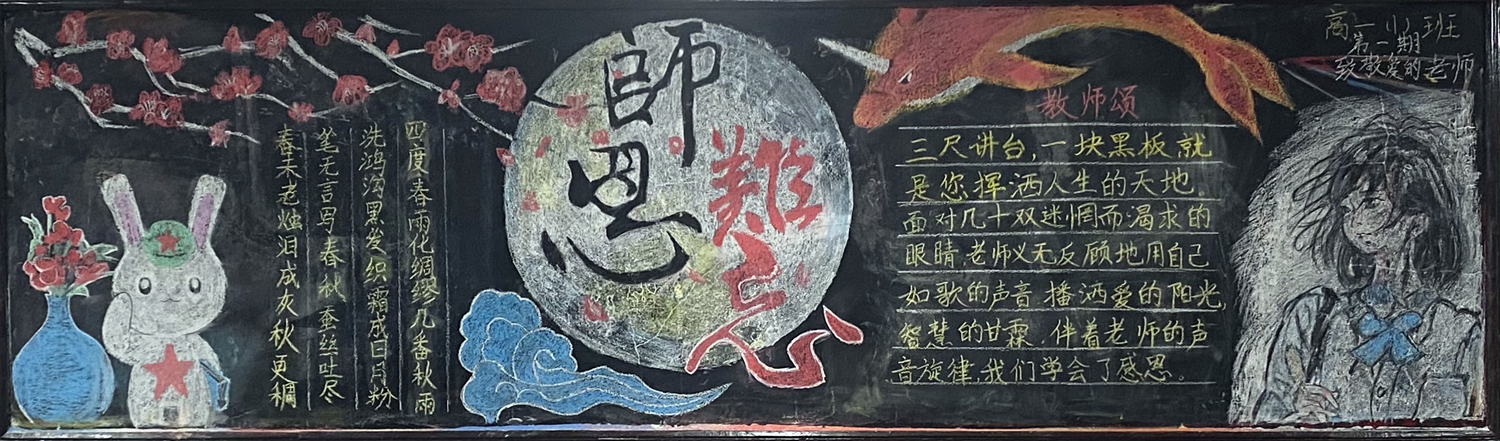 師恩
難忘
四度春雨化绸缪几番秋雨
洗鸿沟黑发织霜成日月粉
笔无言写春秋蚕丝吐尽
春未老烛泪成灰秋更稠
教师颂
三尺讲台,一块黑板就
是您挥洒人生的天地.
面对几十双迷惘而渴求的
眼睛.老师义无反顾地用自己
如歌的声音 播洒爱的阳光,
智慧的甘霖.伴着老师的声
音旋律,我们学会了感恩。
高一(1)班
第一期
致敬爱的老师